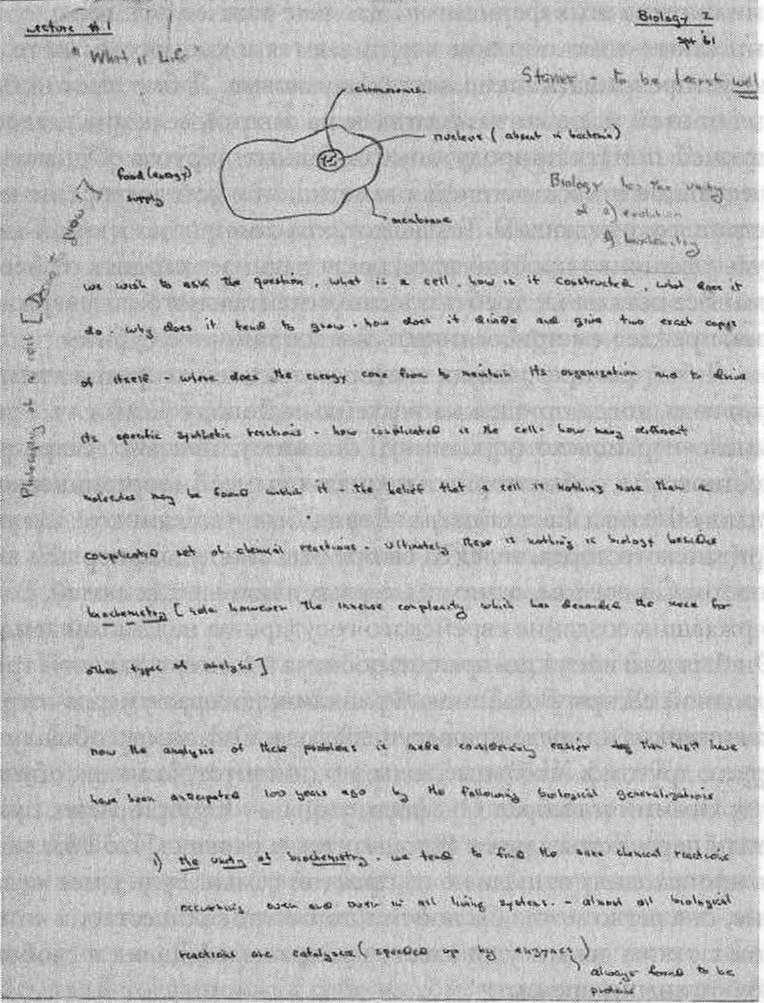 Lecture #1
Biology 2
Spt 61
"What is Life
Stainer - to be learnt well
chromosomes
nucleus (absent in bacteria)
food (energy)
supply
membrane
Biology has the unity
of a) evolution
b) biochemistry
Philosophy of a cell
we wish to ask the question, what is a cell, how is it constructed, what does it
do. why does it tend to grow. how does it divide and give two exact copies
of itself - where does the energy come from to maintain its organization and to drive
its specific synthetic reactions - how complicated is the cell - how many different
molecules may be found within it. The belief that a cell is nothing more than a
complicated set of chemical reactions. Ultimately there is nothing in biology besides
biochemistry [note however the immense complexity which has demanded the need for
other types of analysis]
now the analysis of these problems is made considerably easier than might have
been anticipated 100 years ago by the following biological generalizations
1) the unity of biochemistry. we tend to find the same chemical reactions
occurring over and over in all living systems. - almost all biological
reactions are catalyzed (speeded up by enzymes)
always found to be
protein